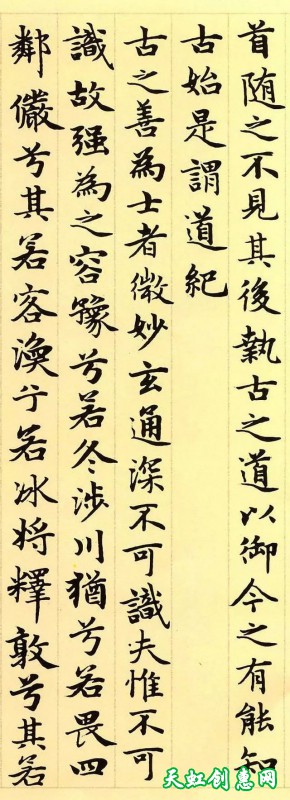 首随之不見其後執古之道以御今之有能知
古始是謂道紀
古之善為士者微妙玄通深不可識夫惟不可
識故强為之容豫兮若冬涉川猶兮若畏四
鄰儼兮其若容渙兮若冰将釋敦兮其若
天虹创惠网